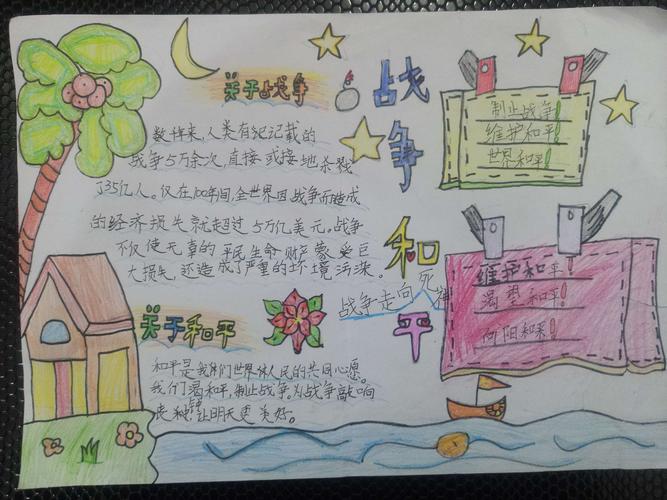 关于战争
数 来，人类有纪记载的
战争5万余次，直接或接地杀戮
了35亿人。仅在100年间，全世界因战争而造成
的经济损失就超过5万亿美元。战争
不仅使无辜的平民生命财产蒙受巨
大损失，还造成了严重的坏境污染。
战争和平
战争走向死神
制止战争！
维护和平！
世界和平！
维护和平！
渴望和平！
向阳和 ！
关于和平
和平是我们世界 人民的共同心愿。
我们渴和平，制止战争。为战争敲响
丧钟，让明天更美好。